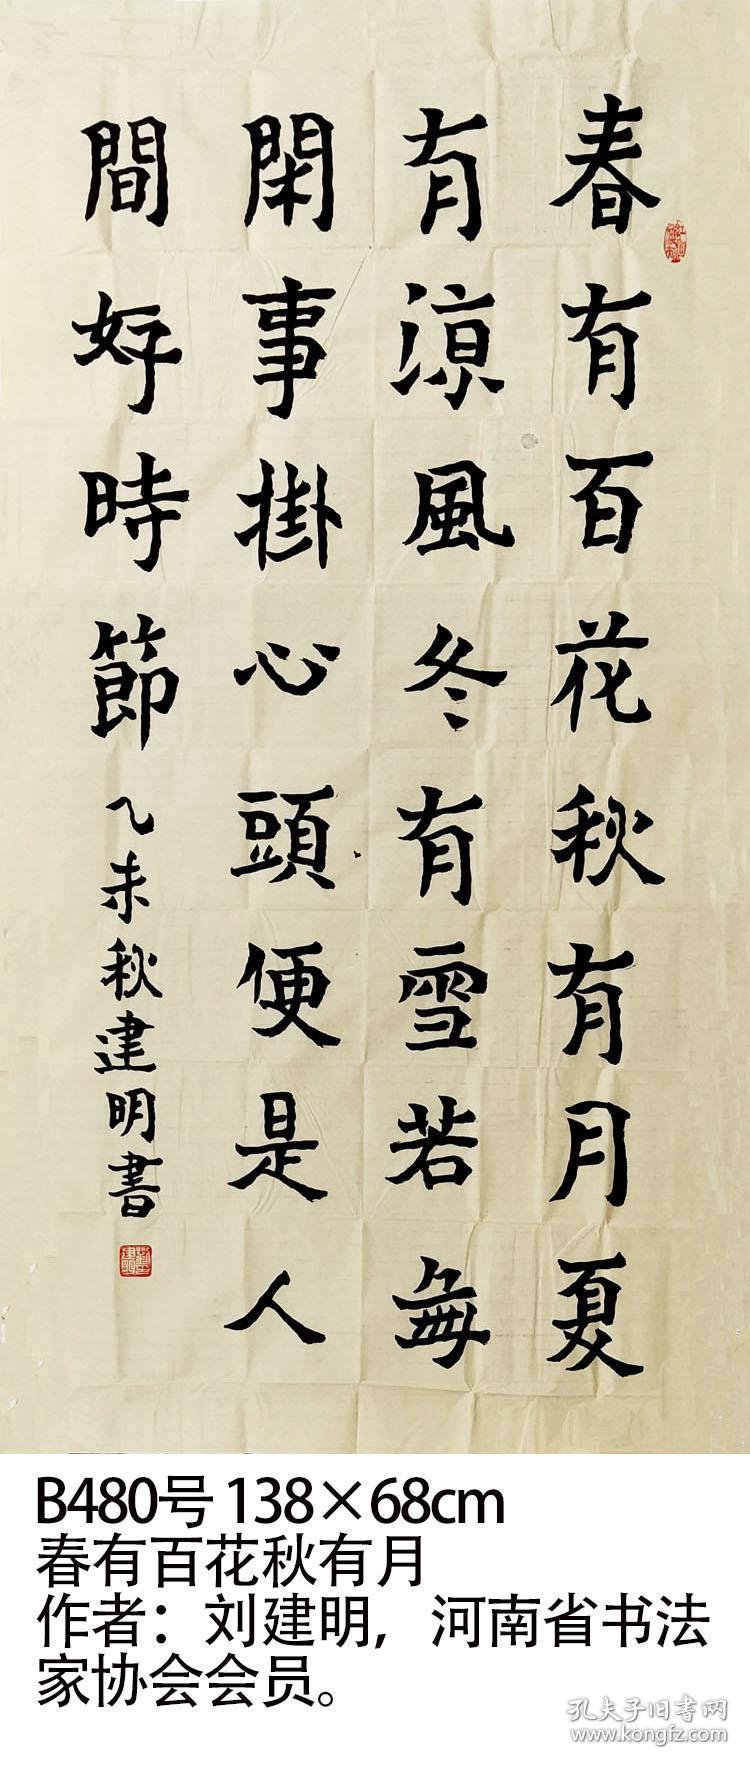 春有百花秋有月夏
有涼風冬有雪若無
閑事掛心頭便是人
間好時節乙未秋建明書
B480号 138×68cm
春有百花秋有月
作者：刘建明，河南省书法
家协会会员。
孔夫子旧书网
www.kongfz.com